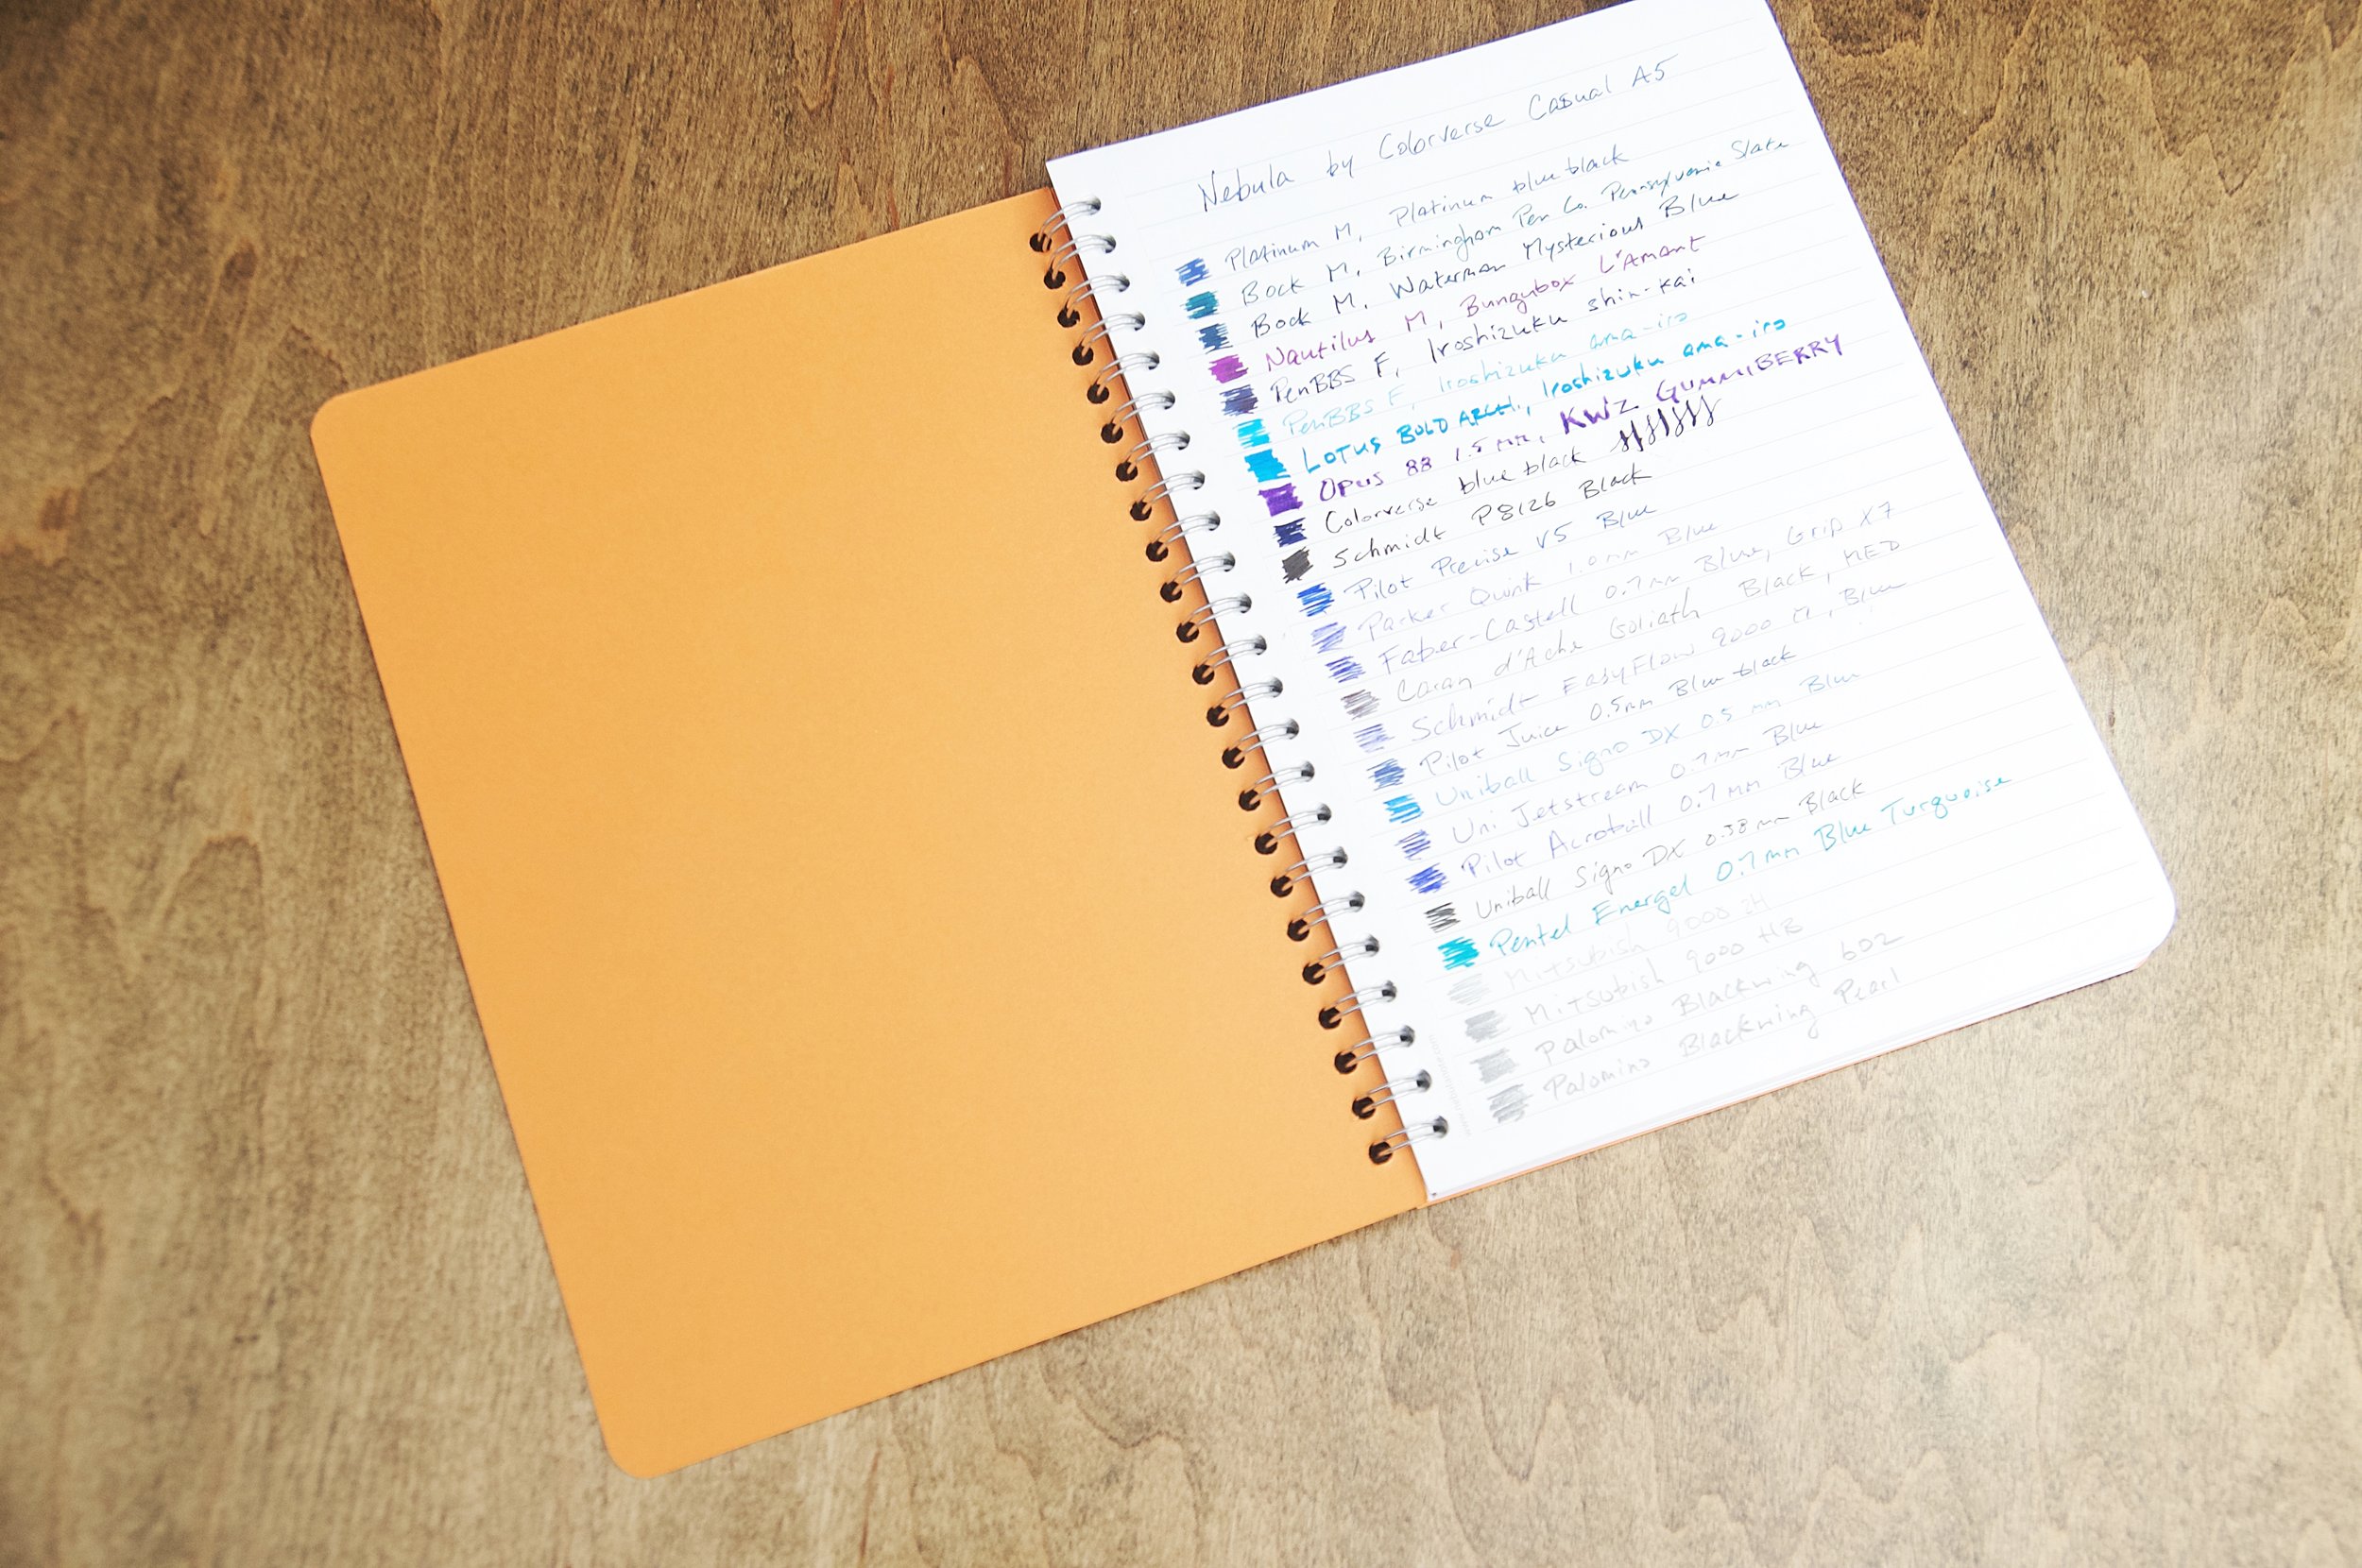 Nebula by Colorverse Casual A5
Platinum M, Platinum blue black
Bock M, Birmingham Pen Co. Pennsylvania Slate
Bock M, Waterman Mysterious Blue
Nautilus M, Bungubox L'Amant
PenBBS F, Iroshizuku shin-kai
PenBBS F, Iroshizuku ama-iro
LOTUS BOLD ARCH., Iroshizuku ama-iro
Opus 88 1.5 mm, KWZ GUMMIBERRY
Colorverse blue black
Schmidt P8126 Black
Pilot Precise V5 Blue
Parker Quink 1.0mm Blue
Faber-Castell 0.7mm Blue, Grip X7
Caran d'Ache Goliath Black, MED
Schmidt EasyFlow 9000 M, Blue
Pilot Juice 0.5mm Blue black
Uniball Signo DX 0.5 mm Blue
Uni Jetstream 0.7mm Blue
Pilot Acroball 0.7mm Blue
Uniball Signo DX 0.38mm Black
Pentel Energel 0.7mm Blue Turquoise
Mitsubish 9000 2H
Mitsubish 9000 HB
Palomino Blackwing 602
Palomino Blackwing Pearl